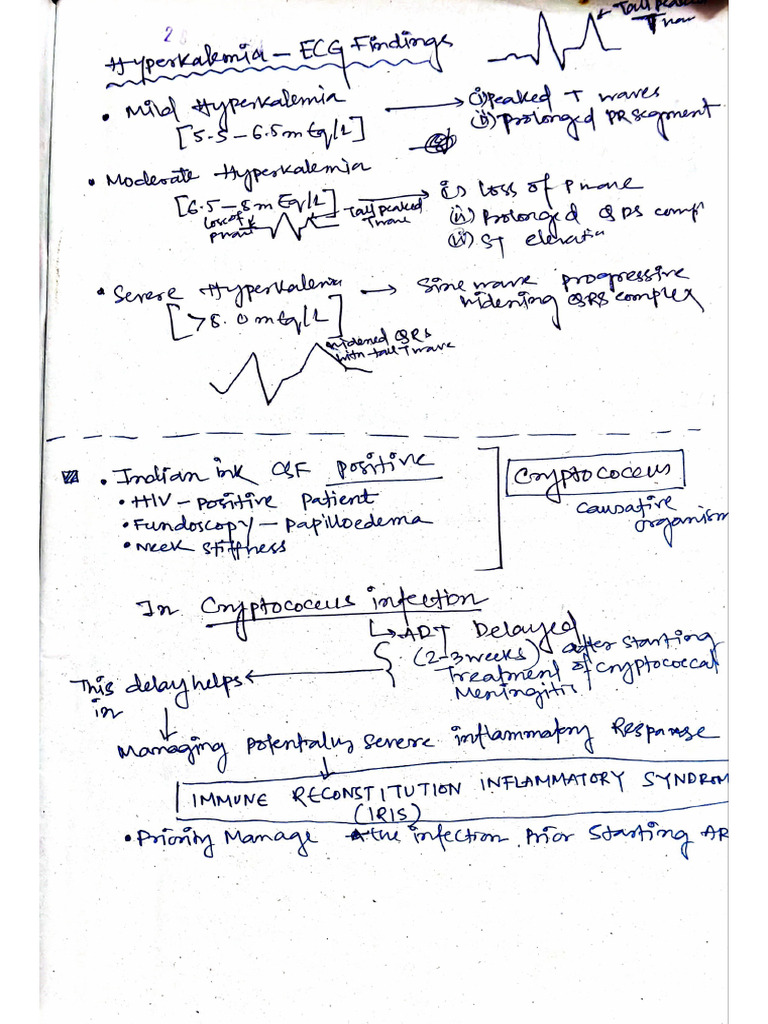 28
Tall peaked
T wave
Hyperkalemia – ECG Findings
• Mild Hyperkalemia → (i) peaked T waves
[5.5 – 6.5 mEq/L] (ii) Prolonged PR segment
• Moderate Hyperkalemia
[6.5 – 8 mEq/L] → (i) Loss of P wave
Loss of P wave
Tall peaked T wave
(ii) Prolonged QRS comp
(iii) ST elevatio
• Severe Hyperkalemia → Sine wave progressive
[>8.0 mEq/L] widening QRS complex
widened QRS
with tall T wave
• Indian ink CSF positive
• HIV – positive patient
• Fundoscopy – papilloedema
• Neck stiffness
Cryptococcus
causative
organism
In Cryptococcus infection
↳ ART Delayed
(2-3 weeks) after starting
Treatment of cryptococcal
Meningitis
This delay helps
in
Managing potentially severe inflammatory Response
IMMUNE RECONSTITUTION INFLAMMATORY SYNDROM
(IRIS)
• Priority Manage the infection prior starting AR